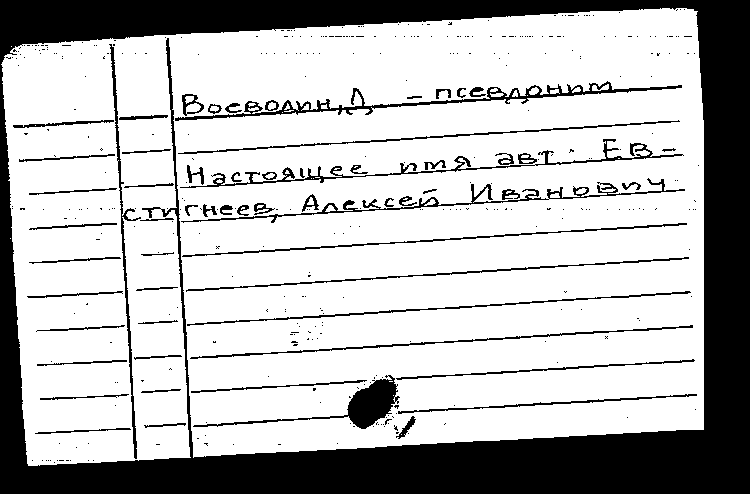 Воеводин, Д. – псевдоним
Настоящее имя авт. Ев-
стигнеев, Алексей Иванович